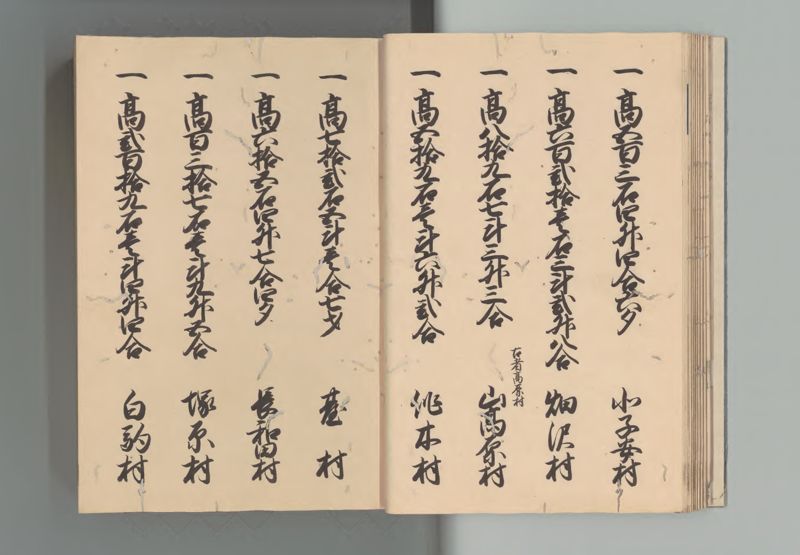 一 高五百三石四升四合六夕 小子安村
一 高六百弐拾壱石三斗弐升八合 畑沢村
古者高原村
一 高八拾九石七斗三升三合 山高原村
一 高五拾九石壱斗六升弐合 作木村
一 高七拾弐石五斗壱合七夕 台村
一 高六拾五石四升七合四夕 長和田村
一 高百三拾七石壱斗九升五合 塚原村
一 高弐百拾九石壱斗四升四合 白駒村